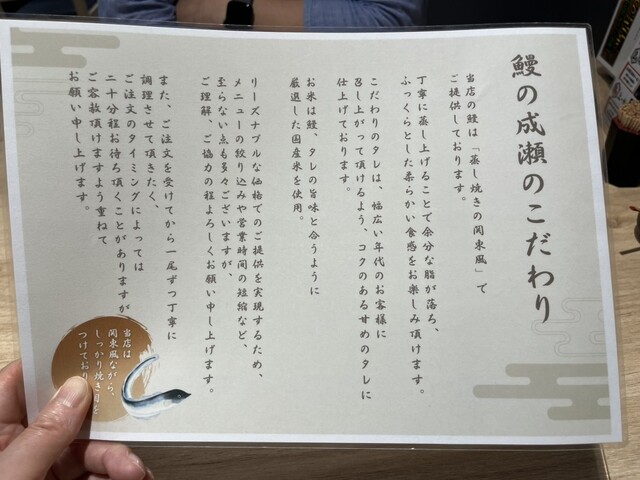 鰻の成瀬のこだわり
当店の鰻は「蒸し焼きの関東風」で
ご提供しております。
丁寧に蒸し上げることで余分な脂が落ち、
ふっくらとした柔らかい食感をお楽しみ頂けます。
こだわりのタレは、幅広い年代のお客様に
召し上がって頂けるよう、コクのある甘めのタレに
仕上げております。
お米は鰻、タレの旨味と合うように
厳選した国産米を使用。
リーズナブルな価格でのご提供を実現するため、
メニューの絞り込みや営業時間の短縮など、
至らない点も多々ございますが、
ご理解、ご協力の程よろしくお願い申し上げます。
また、ご注文を受けてから一尾ずつ丁寧に
調理させて頂きたく、
ご注文のタイミングによっては
二十分程お待ち頂くことがありますが
ご容赦頂けますよう重ねて
お願い申し上げます。
当店は
関東風ながら、
しっかり焼き目を
つけており